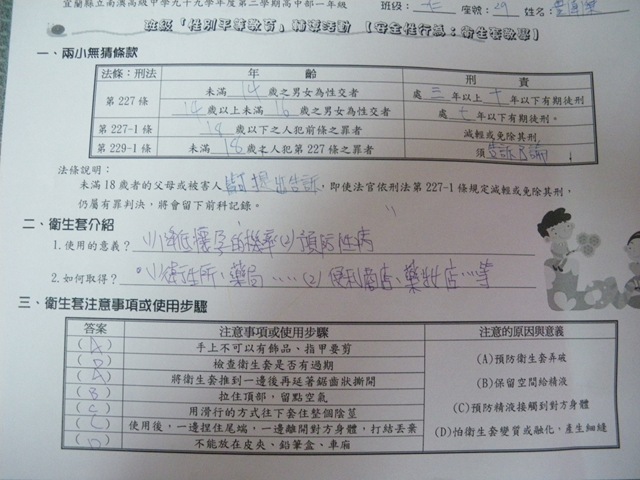 宜蘭縣立南澳高級中學九十九學年度第三學期高中部一年級 班級：七 座號：29 姓名：
班級「性別平等教育」輔導活動 【安全性行為：衛生套教學】
一、兩小無猜條款
法條：刑法 年 齡 刑 責
第 227 條 未滿 14 歲之男女為性交者 處 三 年以上 十 年以下有期徒刑
14 歲以上未滿 16 歲之男女為性交者 處 七 年以下有期徒刑。
第 227-1 條 18 歲以下之人犯前條之罪者 減輕或免除其刑。
第 229-1 條 未滿 18 歲之人犯第 227 條之罪者 須 告訴乃論
法條說明：
未滿 18 歲者的父母或被害人 提出告訴，即使法官依刑法第 227-1 條規定減輕或免除其刑，
仍屬有罪判決，將會留下前科記錄。
二、衛生套介紹
1.使用的意義？ (1)降低懷孕的機率(2)預防性病
2.如何取得？ (1)衛生所、藥局……(2)便利商店、藥妝店…等
三、衛生套注意事項或使用步驟
答案 注意事項或使用步驟 注意的原因與意義
(A) 手上不可以有飾品、指甲要剪
(D) 檢查衛生套是否有過期
(A) 將衛生套推到一邊後再延著鋸齒狀撕開
(B) 拉住頂部，留點空氣
(C) 用滑行的方式往下套住整個陰莖
(C) 使用後，一邊捏住尾端，一邊離開對方身體，打結丟棄
(D) 不能放在皮夾、鉛筆盒、車廂
(A)預防衛生套弄破
(B)保留空間給精液
(C)預防精液接觸到對方身體
(D)怕衛生套變質或融化，產生細縫